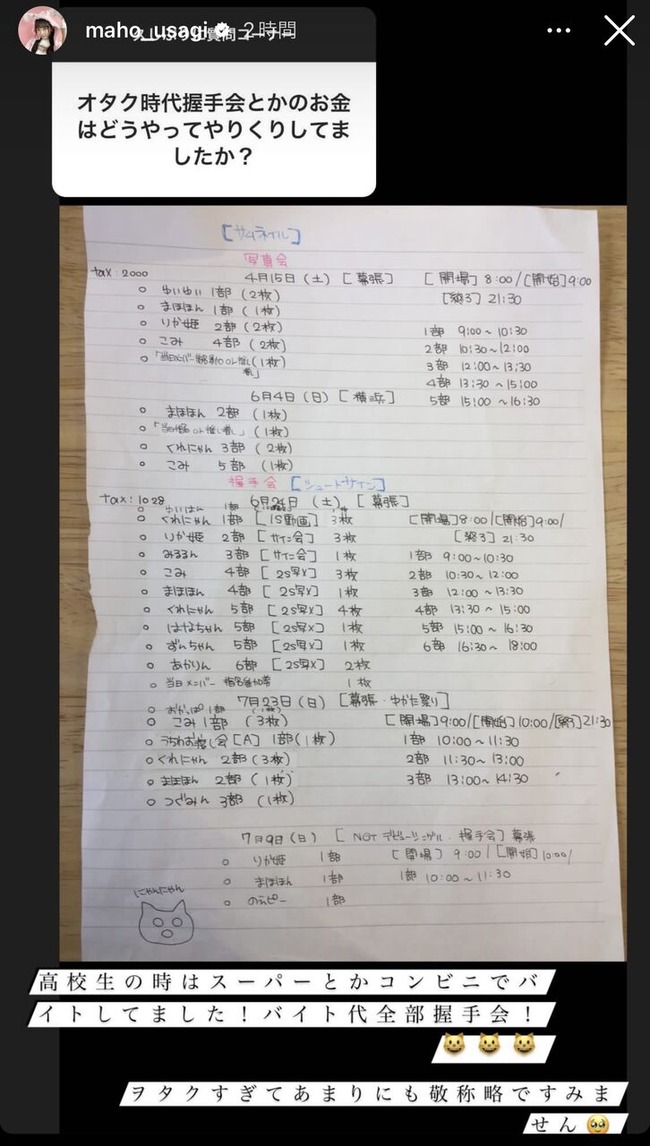 maho_usagi 2時間
オタク時代握手会とかのお金
はどうやってやりくりしてま
したか？
[サムネイル]
写真会
tax:2000
4月15日(土) [幕張] [開場] 8:00/[開始]9:00
[終了] 21:30
○ ゆいゆい 1部 (2枚)
○ まほほん 1部 (1枚)
○ りか姫 2部 (2枚)
○ こみ 4部 (2枚)
(1枚)
1部 9:00~10:30
2部 10:30~12:00
3部 12:00~13:30
4部 13:30~15:00
5部 15:00~16:30
6月4日(日) [横浜]
○ まほほん 2部 (1枚)
(1枚)
○ くれにゃん 3部 (2枚)
○ こみ 5部 (1枚)
握手会 [シュートサイン]
tax:1028
6月24日 (土) [幕張]
○ くれにゃん 1部 [IS動画] 3枚 [開場]8:00/[開始]9:00/
[終了] 21:30
○ りか姫 2部 [サイン会] 3枚
○ みるるん 3部 [サイン会] 1枚
○ こみ 4部 [2S写X] 3枚
○ まほほん 4部 [2S写X] 1枚
○ くれにゃん 5部 [2S写X] 4枚
○ はなちゃん 5部 [2S写X] 1枚
○ ずんちゃん 5部 [2S写X] 1枚
○ あかりん 6部 [2S写X] 2枚
○ 当日メンバー 1枚
1部 9:00~10:30
2部 10:30~12:00
3部 12:00~13:30
4部 13:30~15:00
5部 15:00~16:30
6部 16:30~18:00
7月23日(日) [幕張・ゆかた祭り]
○ おかっぱ 1部
○ こみ 1部 (3枚) [開場]9:00/[開始]10:00/[終了]21:30
○ うちわお渡し会[A] 1部(1枚)
○ くれにゃん 2部(3枚)
○ まほほん 2部 (1枚)
○ つぐみん 3部 (1枚)
1部 10:00~11:30
2部 11:30~13:00
3部 13:00~14:30
7月9日(日) [NGTデビューシングル 握手会] 幕張
○ りか姫 1部 [開場] 9:00/[開始]10:00/
○ まほほん 1部 1部 10:00~11:30
○ のえピー 1部
にゃんにゃん
高校生の時はスーパーとかコンビニでバ
イトしてました！バイト代全部握手会！
😺😺😺
ヲタクすぎてあまりにも敬称略ですみま
せん🥹